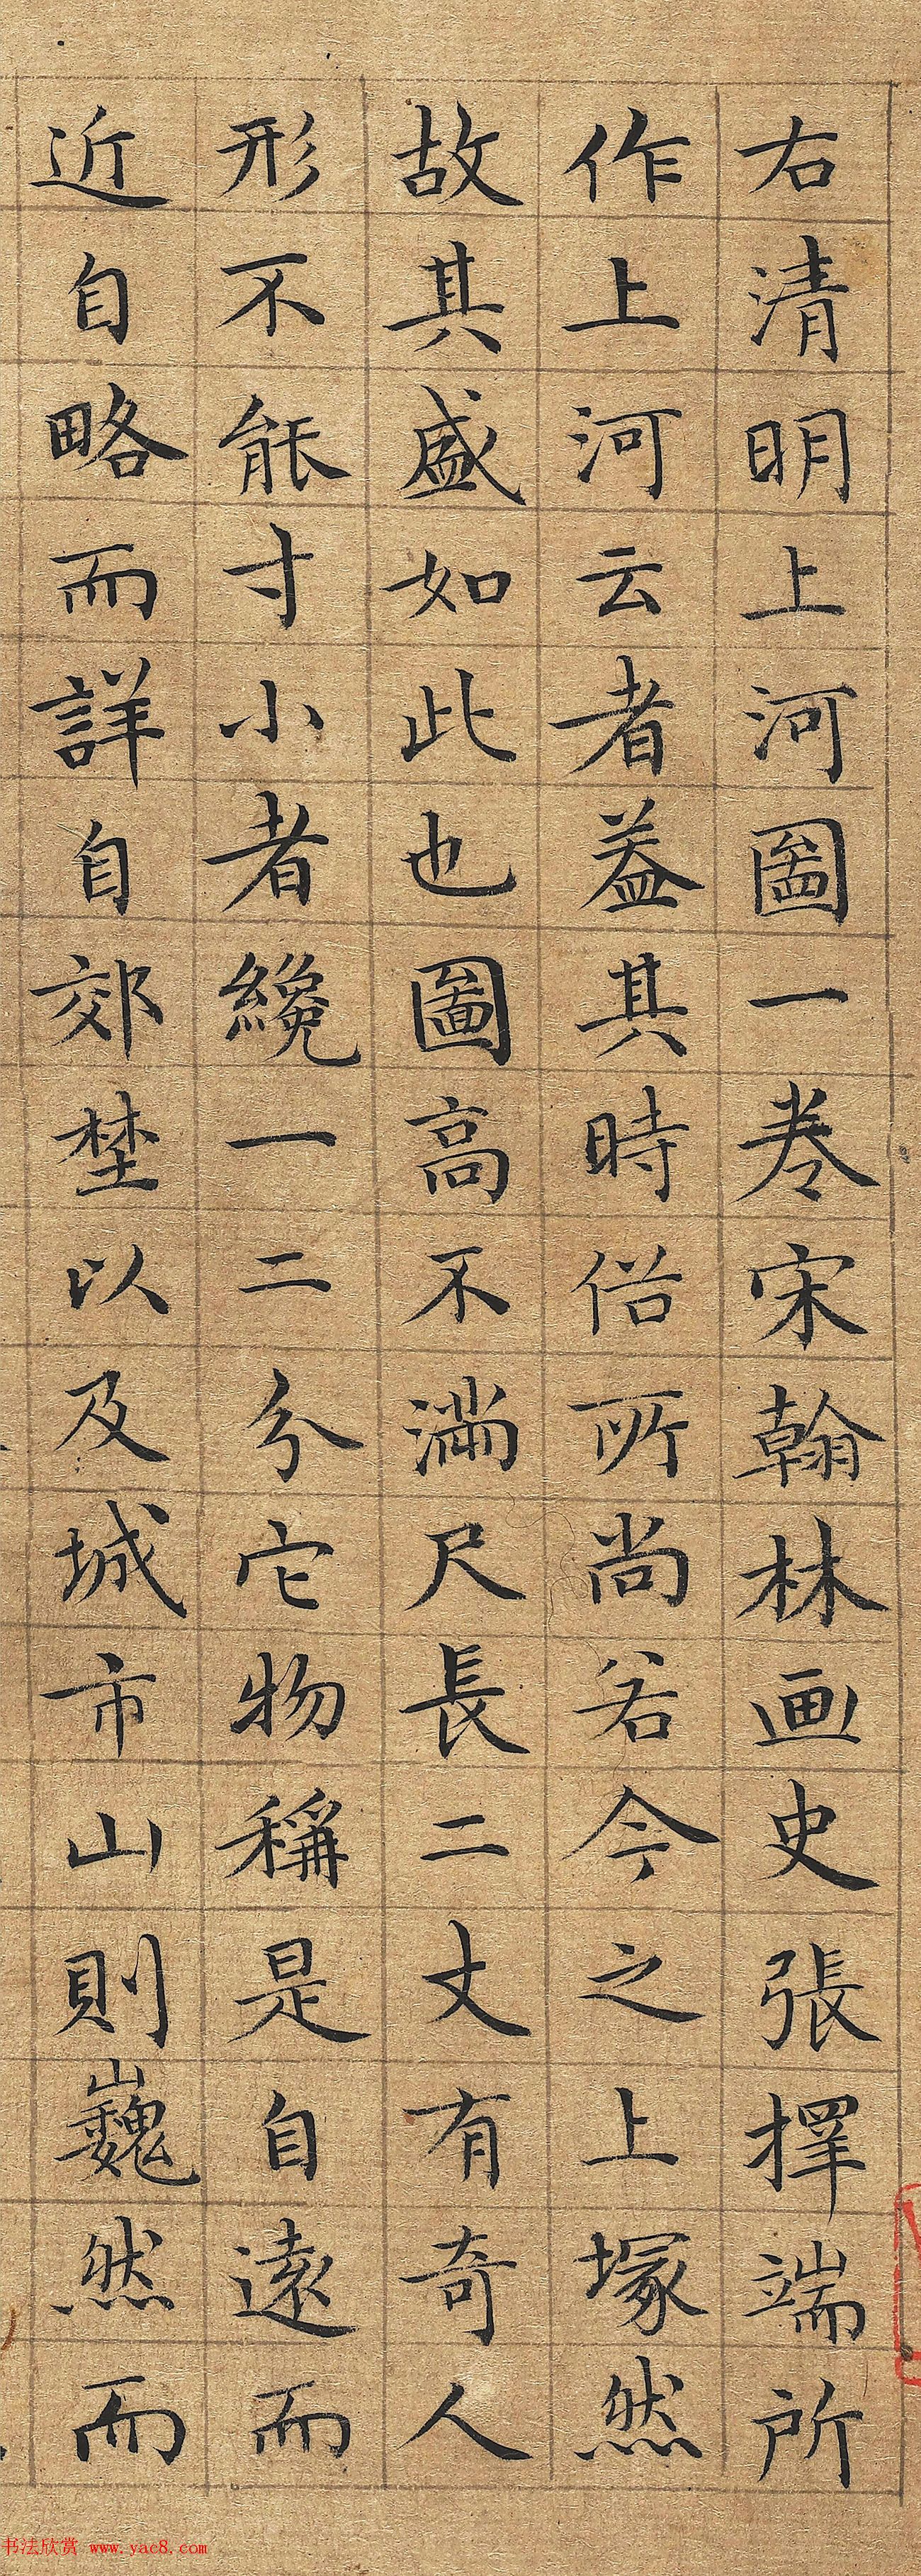 右清明上河圖一卷宋翰林画史張擇端所
作上河云者蓋其時俗所尚若今之上塚然
故其盛如此也圖高不滿尺長二丈有奇人
形不能寸小者纔一二分它物稱是自遠而
近自略而詳自郊埜以及城市山則巍然而
书法欣赏 www.yac8.com